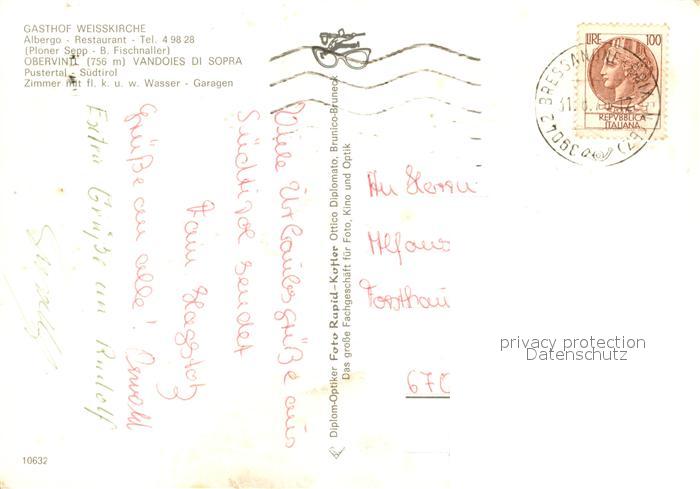 GASTHOF WEISSKIRCHE
Albergo - Restaurant - Tel. 4 98 28
(Ploner Sepp - B. Fischnaller)
OBERVINTL (756 m) VANDOIES DI SOPRA
Pustertal - Südtirol
Zimmer mit fl. k. u. w. Wasser - Garagen
LIRE 100
REPVBBLICA
ITALIANA
39042 BRESSANONE
(BZ)
Viele Urlaubsgrüße aus
Südtirol sendet
Fam
Grüße an alle! Oswald
Extra Grüße an Rudolf
Diplom-Optiker Foto Rapid-Kofler Ottico Diplomato, Brunico-Bruneck
Das große Fachgeschäft für Foto, Kino und Optik
An Herrn
Alfons
Forsthau
670
privacy protection
Datenschutz
10632